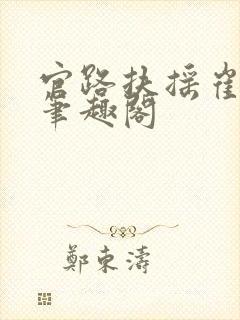 官路扶摇崔
笔趣阁
鄭東濤